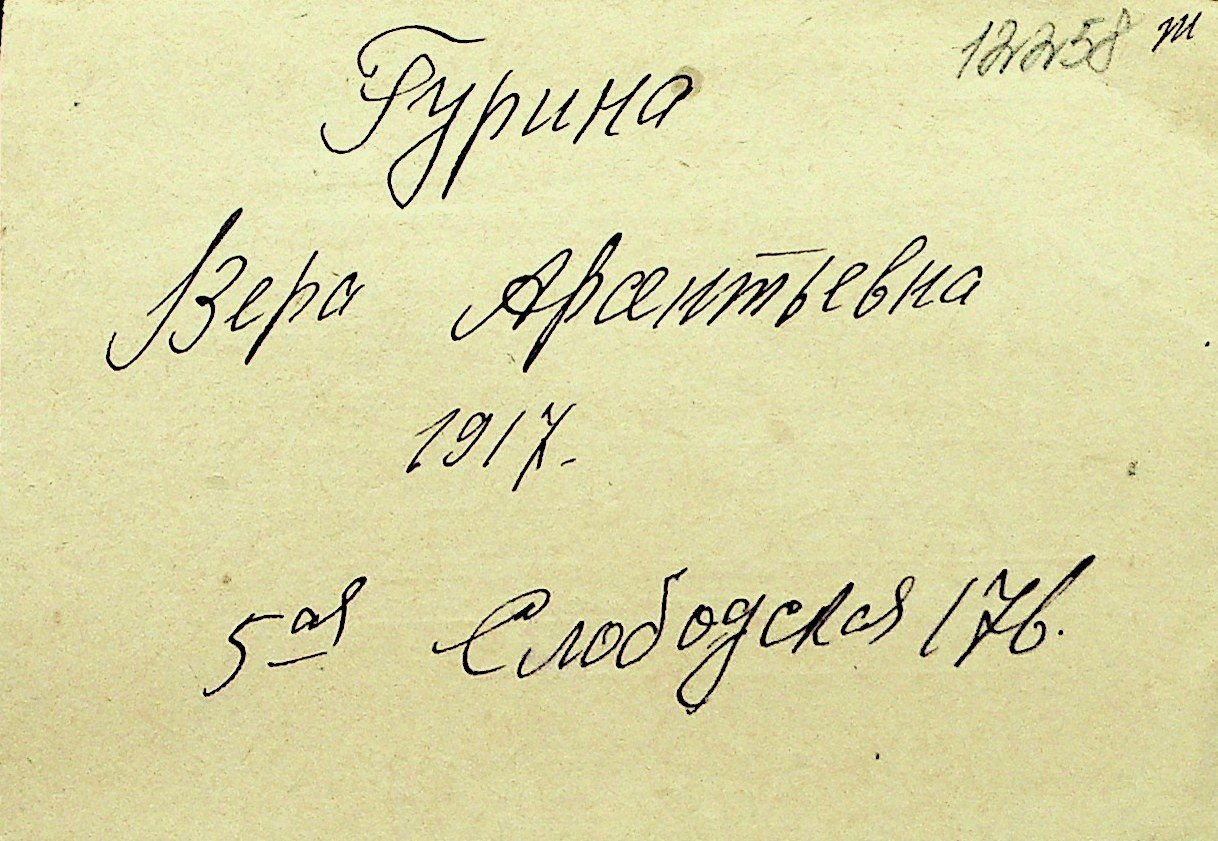 12258 т
Гурина
Вера Арсентьевна
1917.
5ая Слободская 17в.